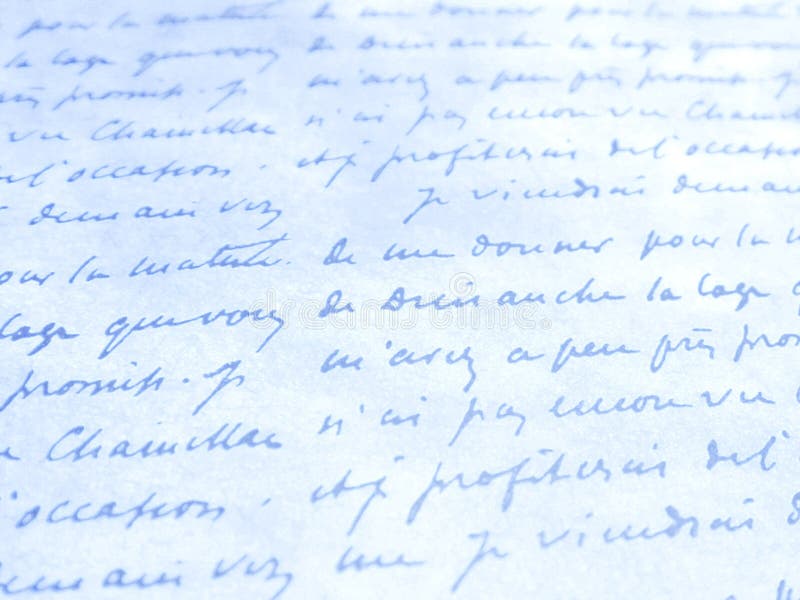 pour la matinée de me donner pour la
la loge que vous de Dimanche la loge que vous
près promise. Je m'avez a peu près promise. Je
vu Chamillac n'ai pas encore vu Chamillac
de l'occasion. et je profiterais de l'occasion
demain voy Je viendrais demain
pour la matinée. de me donner pour la
loge que vous de Dimanche la loge
promise. Je m'avez a peu près
Chamillac n'ai pas encore vu
l'occasion. et je profiterais de l'
demain voy Je viendrais